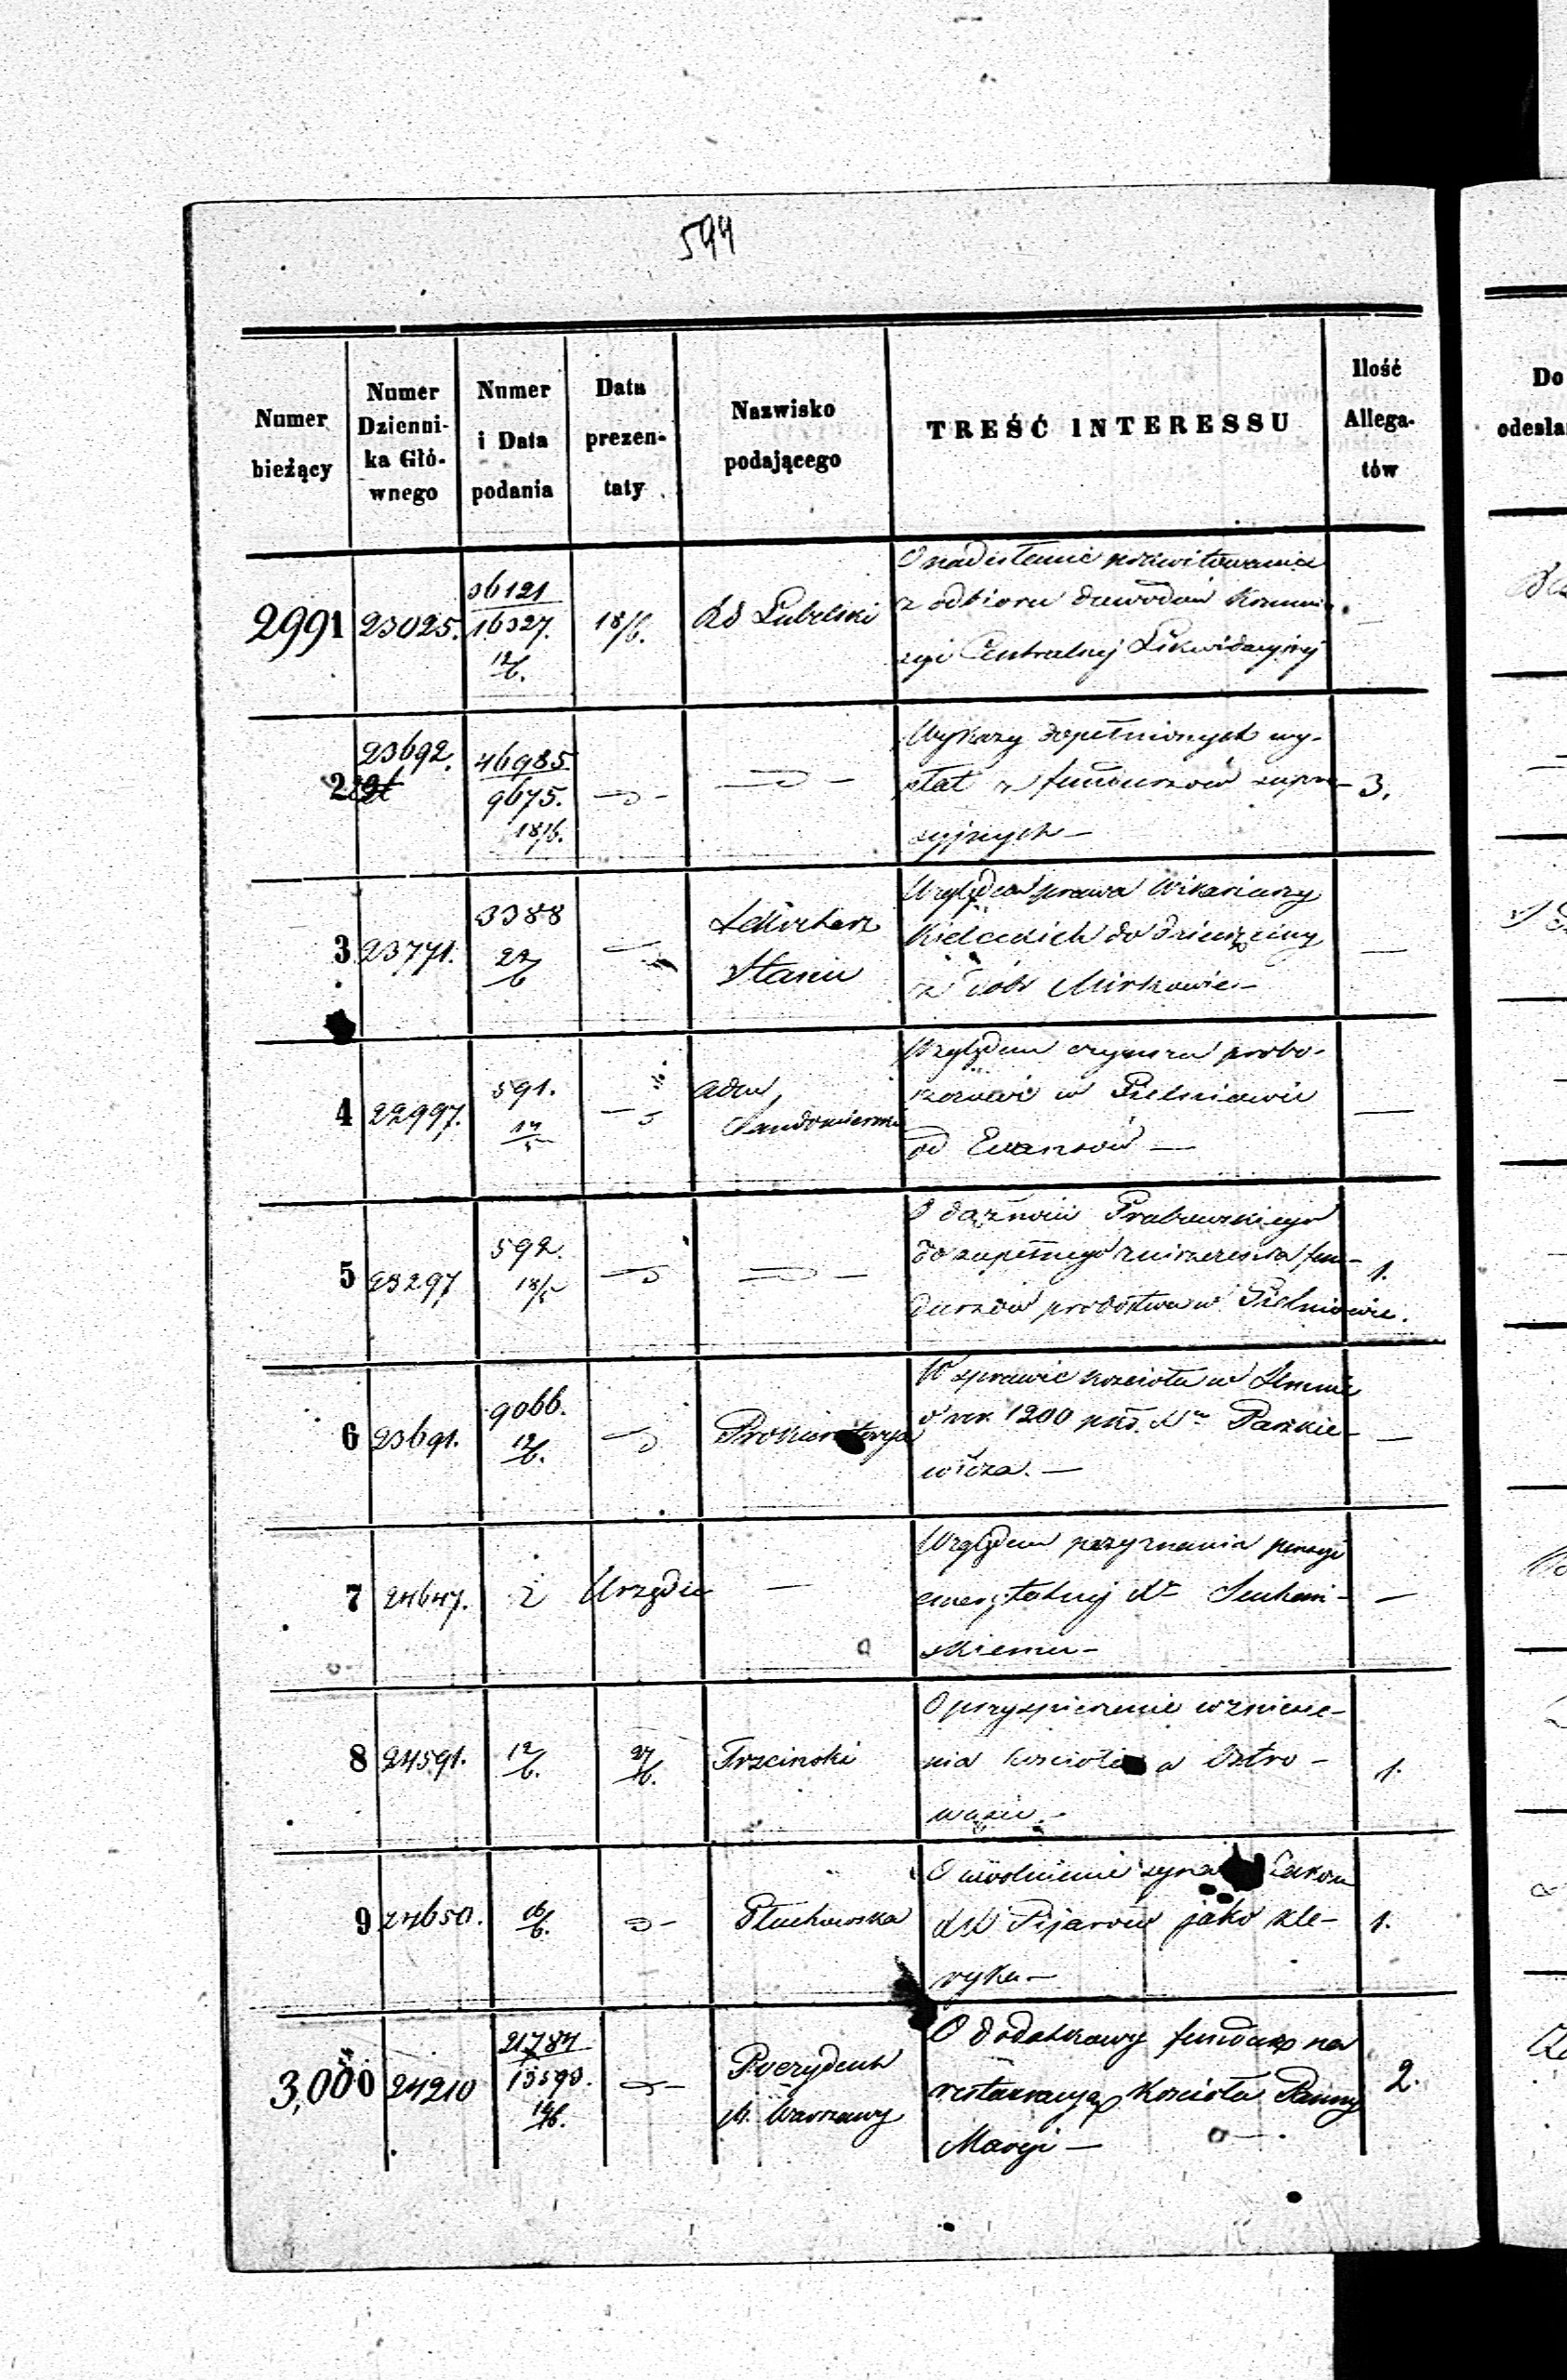 594
Numer bieżący
Numer Dzienni- ka Głó- wnego
Numer i Data podania
Data prezen- taty
Nazwisko podającego
TREŚĆ INTERESSU
Ilość Allega- tów
Do
odesła
2991 23025. 36121 16327. 12/6. 18/6. Rd Lubelski O nadesłanie pokwitowania
z odbioru dowodów Kommi-
syi Centralnej Likwidacyjnej
2 23692. 46985. 9675. 18/6. Wykazy dopełnionych wy-
płat z funduszów supre- 3.
syjnych —
3 23771. 3388 22/6 Stanu Względem prawa Wikariuszy
Kieleckich do dziesięciny
z dóbr Mirkowic —
4 22997. 591. 17/5 Adm. Sandomierski Względem czynszu probo-
szczowi w
od Evansów —
5 23297 592. 18/5 O dążności Prabuckiego
do zupełnego zniszczenia fun- 1.
duszów probostwa w
6 23691. 9066. 12/6. Prokuratorya W sprawie kościoła w
o rsr. 1200 Paszkie-
wicza. —
7 24647. Z Urzędu — Względem przyznania pensyi
emerytalnej
skiemu —
8 24591. 12/6. 27/6. Trzcinski O przyspieszenie wzniesie-
nia kościoła w Ostro- 1.
wąsie —
9 24650. 16/6. Płuchowska O uwolnienie syna Zakonu
XX Pijarów jako kle- 1.
ryka —
3,000 24210 21787 13593. 14/6. Prezydent M. Warszawy O dodatkowy fundusz na
restauracyą Kościoła Panny 2.
Maryi —